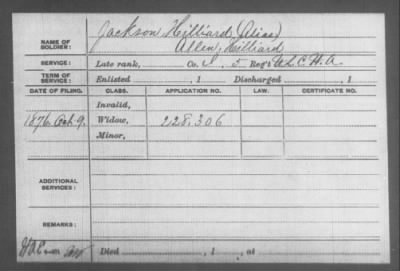 Jackson, Hilliard (Alias)
NAME OF SOLDIER: Allen, Hilliard
SERVICE: Late rank, Co. 5 Reg't U.S.C.H.A.
TERM OF SERVICE: Enlisted , 1 Discharged , 1
DATE OF FILING. CLASS. APPLICATION NO. CERTIFICATE NO.
Invalid,
1876 Oct. 9. Widow, 228,306
Minor,
ADDITIONAL SERVICES:
REMARKS:
Died , 1 , at